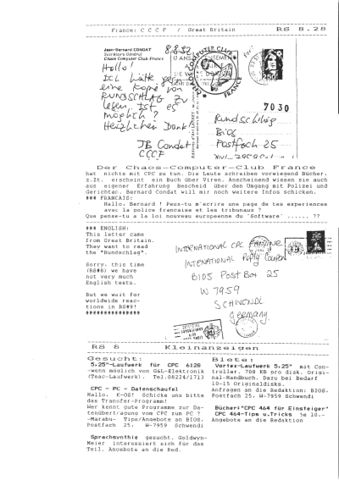 France: C C C F / Great Britain RS 8.28
Jean-Bernard CONDAT
Secrétaire Général
Chaos Computer Club France
8.8.92
COMPUTER CLUB
FRANCE
Hallo!
Ich hätte gern
eine Kopie von
RUNDSCHLAG zu
lesen. Ist es
möglich?
Herzlichen Dank!
JB Condat
CCCF
7030
Rundschlag
BIOS
Postfach 25
Der Chaos-Computer-Club France
hat nichts mit CPC zu tun. Die Leute schreiben vorwiegend Bücher.
z.Zt. erscheint ein Buch über Viren. Anscheinend wissen sie auch
aus eigener Erfahrung bescheid über den Umgang mit Polizei und
Gerichten. Bernard Condat will mir noch weitere Infos schicken.
### FRANCAIS:
Hello. Bernard ! Peux-tu m'ecrire une page de tes experiences
avec la police francaise et les tribuneaux ?
Que penses-tu a la loi nouveau europeenne du 'Software' ...... ??
### ENGLISH:
This letter came
from Great Britain.
They want to read
the "Rundschlag".
Sorry, this time
(RS#8) we have
not very much
English texts.
But we wait for
worldwide reac-
tions in RS#9!
###############
INTERNATIONAL CPC
INTERNATIONAL Reply Coupon
BIOS POST BOX 25
W 7959
SCHWENDI
Germany
RS 8 Kleinanzeigen
Gesucht:
5.25"-Laufwerk für CPC 6128
-wenn möglich von G&L-Elektronik
(Teac-Laufwerk). Tel.08224/1713
CPC - PC - Datenschaufel
Hallo, E-OS! Schicke uns bitte
das Transfer-Programm!
Wer kennt gute Programme zur Da-
tenübertragung vom CPC zum PC ?
-Marabu- Tips/Angebote an BIOS,
Postfach 25, W-7959 Schwendi
Sprachsynthie gesucht. Goldwyn-
Meier interessiert sich für das
Teil. Angebote an Red.
Biete:
Vortex-Laufwerk 5.25" mit Con-
troller, 708 KB pro disk. Origi-
nal-Handbuch. Dazu bei Bedarf
10-15 Originaldisks.
Anfragen an die Redaktion: BIOS,
Postfach 25, W-7959 Schwendi
Bücher:"CPC 464 für Einsteiger"
CPC 464-Tips u.Tricks 5e ld..
Angebote an die Redaktion